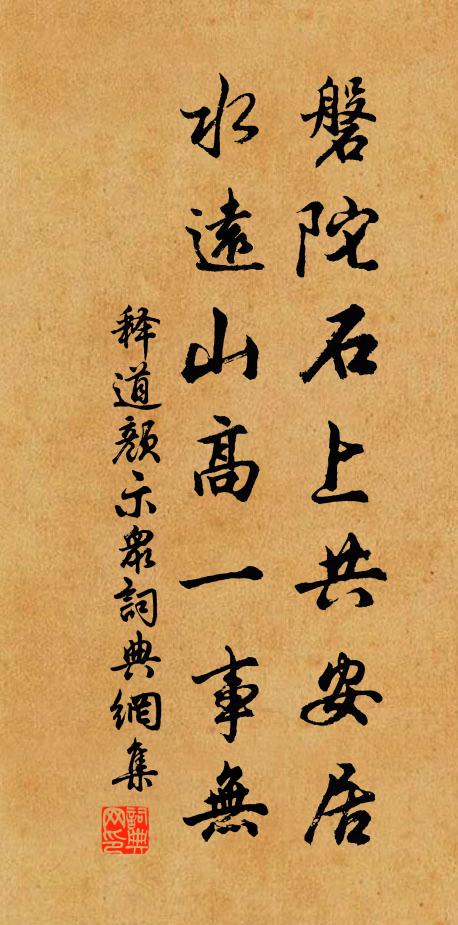 磐陀石上共安居
水遠山高一事無
释道顏示眾詞典網集
詞典网印